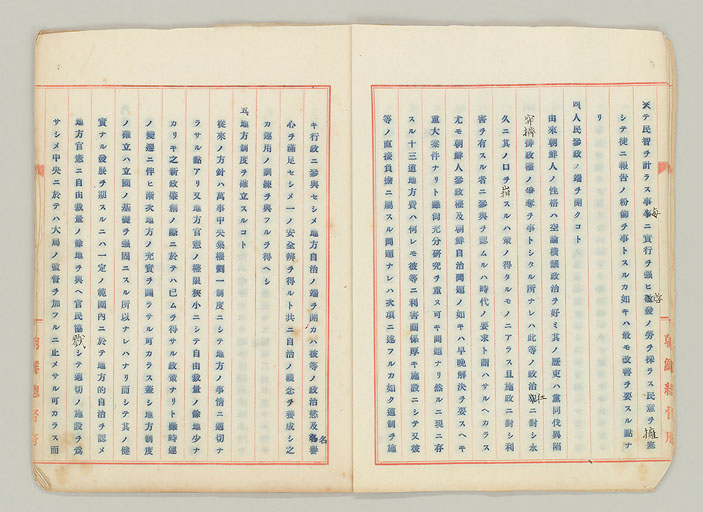 テ民智ヲ計ラス事毎ニ實行ヲ强ヒ啓發ノ勞ヲ採ラス民意ヲ擁塞
シテ徒ニ報告ノ粉飾ヲ事トスルカ如キハ最モ改善ヲ要スル點ナ
リ
四、人民參政ノ端ヲ開クコト
由來朝鮮人ノ性格ハ空論橫議政治ヲ好ミ其ノ歷史ハ黨同伐異陷
擠排政權ノ爭奪ヲ事トシタル所ナレハ此等ノ政治狂ニ對シ永
久ニ其ノ口ヲ箝スルハ策ノ得タルモノニアラス且施政ニ對シ利
害ヲ有スル者ニ參與ヲ認ムルハ時代ノ要求ト謂ハサルヘカラス
尤モ朝鮮人參政權及朝鮮自治問題ノ如キハ早晚解決ヲ要スヘキ
重大案件ナリト雖尙充分硏究ヲ重ヌ可キ問題ナリ然ルニ現ニ存
スル十三道地方費ハ何レモ彼等ニ利害關係厚キ施設ニシテ又彼
等ノ直接負擔ニ屬スル問題ナレハ次項ニ述フルカ如ク道制ヲ施
朝鮮總督府
キ行政ニ參與セシメ地方自治ノ端ヲ開カハ彼等ノ政治慾及名譽
心ヲ滿足セシメ一ノ安全瓣ヲ得ルト共ニ自治ノ觀念ヲ養成シ之
カ運用ノ訓練ヲ與フルヲ得ヘシ
五、地方制度ヲ確立スルコト
從來ノ方針ハ萬事中央集權劃一制度ニシテ地方ノ事情ニ適切ナ
ラサル點アリ又地方官憲ノ權限狹小ニシテ自由裁量ノ餘地少ナ
カリキ之新政創始ノ際ニ於テハ已ムヲ得サル政策ナリト雖時運
ノ變遷ニ伴ヒ漸次地方ノ充實ヲ圖ラサル可カラス蓋シ地方制度
ノ確立ハ立國ノ基礎ヲ强固ニスル所以ナレハナリ而シテ其ノ健
實ナル發展ヲ期スルニハ一定ノ範圍內ニ於テ地方的自治ヲ認メ
地方官憲ニ自由裁量ノ餘地ヲ與ヘ官民協戮シテ適切ノ施設ヲ爲
サシメ中央ニ於テハ大局ノ監督ヲ加フルニ止メサル可カラス而
朝鮮總督府